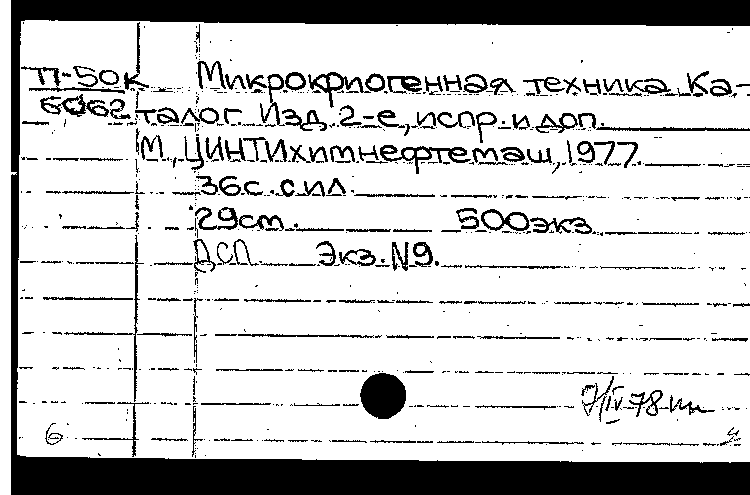 П-50к Микрокриогенная техника. Ка-
6062 талог. Изд. 2-е, испр. и доп.
М., ЦИНТИхимнефтемаш, 1977.
36с. с ил.
29см. 500экз.
ДСП Экз. N9.
/IV-78
6